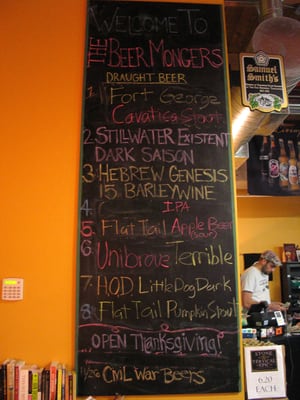 WELCOME TO
THE BEER MONGERS
DRAUGHT BEER
1. Fort George
Cavatica Stout
2. STILLWATER EXISTENT
DARK SAISON
3. HEBREW GENESIS
15. BARLEYWINE
4. IPA
5. Flat Tail Apple Beer
(sour)
6. Unibroue Terrible
7. H.O.D Little Dog Dark
8. Flat Tail Pumpkin Stout
...OPEN Thanksgiving!
11/26 Civil War Beers
Samuel
Smith's
6.20
EACH